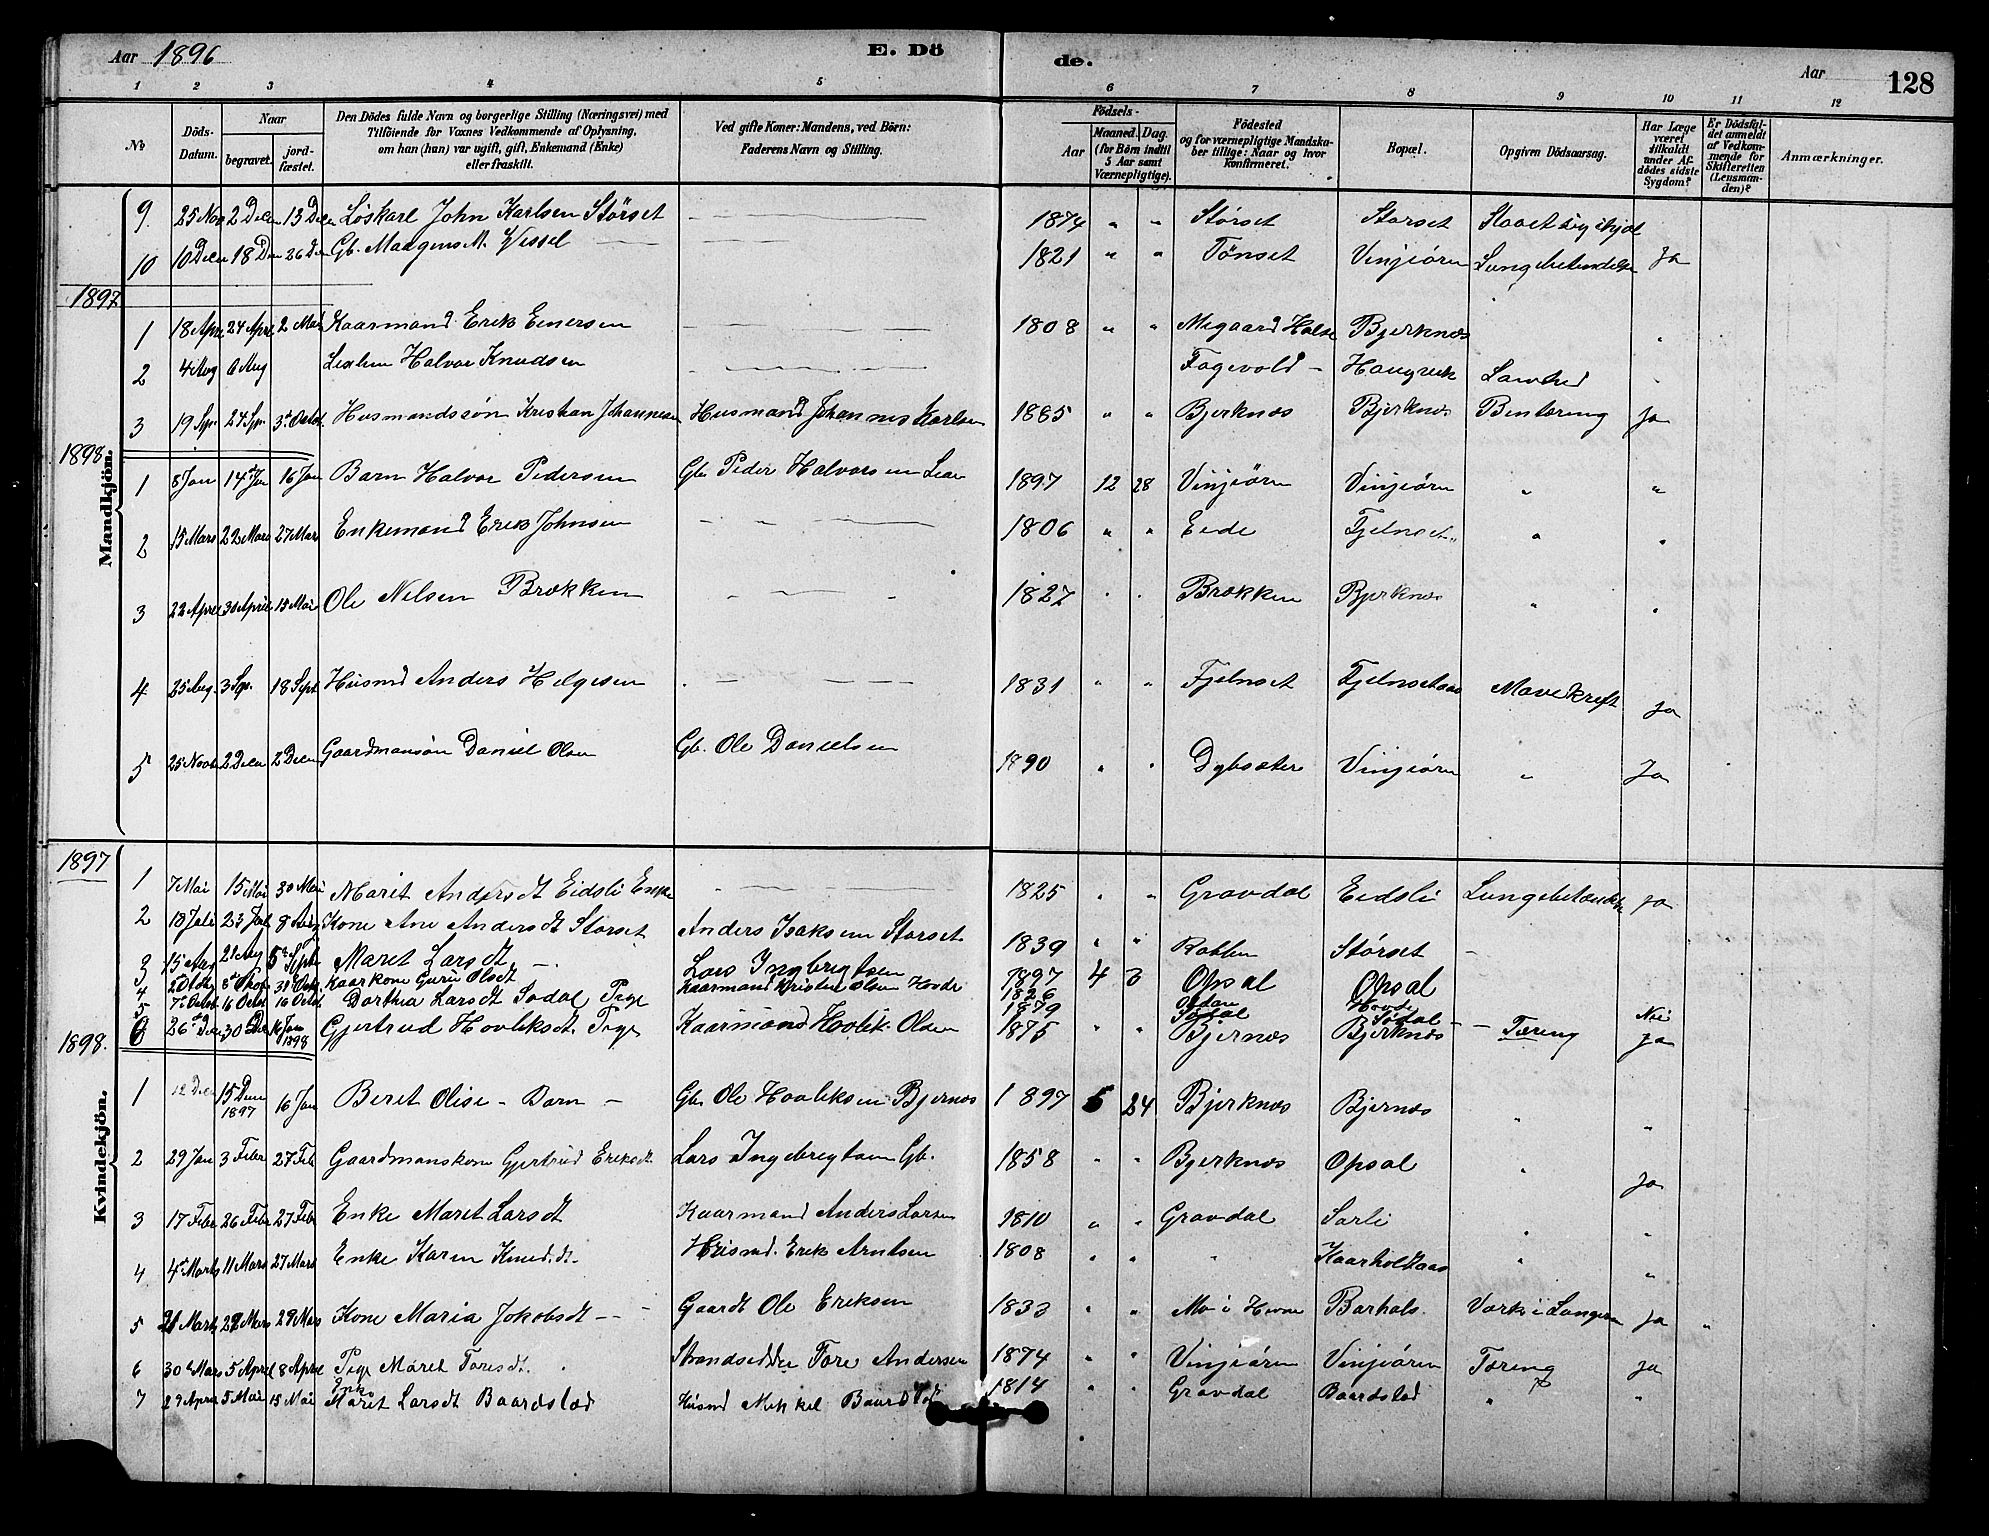 Aar 1896 E. Dö de. Aar 128
1 2 3 4 5 6 7 8 9 10 11 12
No
Döds-Datum.
Naar
begravet.
jord-fæstet.
Den Dödes fulde Navn og borgerlige Stilling (Næringsvei) med
Tilföiende for Voxnes Vedkommende af Oplysning,
om han (hun) var ugift, gift, Enkemand (Enke)
eller fraskilt.
Ved gifte Koner: Mandens, ved Börn:
Faderens Navn og Stilling.
Födsels-
Aar
Maaned. Dag.
(for Börn indtil
5 Aar samt
Værnepligtige).
Födested
og for værnepligtige Mandska-
ber tillige: Naar og hvor
konfirmeret.
Bopæl.
Opgiven Dödsaarsag.
Har Læge
været
tilkaldt
under Af-
dödes sidste
Sygdom?
Er Dödsfal-
det anmeldt
af Vedkom-
mende for
Skifteretten
(Lensman-
den)?
Anmærkninger.
Mandkjön.
9. 25 Nov 2 Decm 13 Decm Løskarl John Karlsen Störset 1874 " " Störset Storset
10 10 Decm 18 Dm 26 Dm Gb. Maagens M. Wessel 1821 " " Tönset Vinjeören Lungebetændelse Ja
1897
1 18 Apr 24 Apri 2 Mai Kaarmand Erik Einersen 1808 " " Megaard Halse Bjerknæs
2 4 Aug 6 Aug Halvor Knudsen Fagevold
3 19 Sp. 24 Sp. 3d Octob. Husmandssön Kristian Johannesen Husmand Johannes Karlsen 1885 " " Bjerknæs Bjerknæs Bentæring Ja
1898
1 8 Jan 14d Jan 16 Jan Barn Halvor Pedersen Gb Peder Halvorsen 1897 12 28 Vinjeören Vinjeören " "
2 15 Mars 22 Mars 27 Mars Enkemand Erik Johnsen 1806 " " Eide Fjelnset "
3 22 April 30 April 15 Mai Ole Nelsen Brækken 1827 Brækken Bjerknæs "
4 25 Aug. 3 Sp. 18 Sept. Husmd Anders Helgesen 1831 " " Fjelnset Fjelnsetaas Mavekreft Ja
5 25 Novb 2 Decm 2 Decm Gaardmansön Daniel Olsen Gb. Ole Danielsen 1890 Dybsæter Vinjeören " Ja
1897
Kvindekjön.
1 7 Mai 15 Mai 30 Mai Marit Andersdt Eidsli Enke 1825 " " Gravdal Eidsli Lungebetændelse Ja
2 18 Juli 23 Juli 8 Aug Kone Ane Andersdt Storset Anders Isaksen Storset 1839 " " Kobben Störset
3 15 Aug 21 Aug 5te Sept Maret Larsdt Lars Ingbregtsen 1897 4 3 Opsal Opsal
4 Kaarkone Guru Olsdt Kaarmand Kristen Olsen Hovde 1826 Hovde
5 7d Octob 16 Octob 16 Octob Dorthea Larsdt Södal Pige 1879 Södal Södal Nei
6 26d Dec 30 Dec 16 Jan 1898 Gjertrud Hovliksdt. Pige Kaarmand Hovlik Olsen 1875 " " Bjernæs Bjerknæs Tæring Ja
1898.
1 12 Decm 15 Decm 1897 16 Jan Beret Olise - Barn Gb. Ole Hovliksen Bjernæs 1897 5 24 Bjerknæs Bjernæs " "
2 29 Jan 3 Febr 27 Feb Gaardmanskone Gjertrud Eriksdt Lars Ingebregtsen Gb. 1858 " " Bjerknæs Opsal Ja
3 17 Febr 26 Febr 27 Febr Enke Maret Larsdt Kaarmand Anders Larsen 1810 " " Gravdal Sarli "
4 4d Marts 11 Mars 27 Mars Enke Karen Knud.dt. Husmd. Erik Arntsen 1808 " " " Kaarholtaas "
5 21 Marts 29 Mars 29 Mars Kone Maria Jokobsdt Gaardt Ole Eriksen 1833 " " Mo i Hevne Barhals. Værk i Lungen Ja "
6 30d Mars 5 April 8 April Pige Maret Toresdt. Strandsidder Tore Andersen 1874 " " Vinjeören Vinjeören Tæring Ja
7 29 April 5 Mai 15 Mai Enke Maret Larsdt Baardslad Husmd Mikkel Baardslad 1814 " " Gravdal Baardslad " "